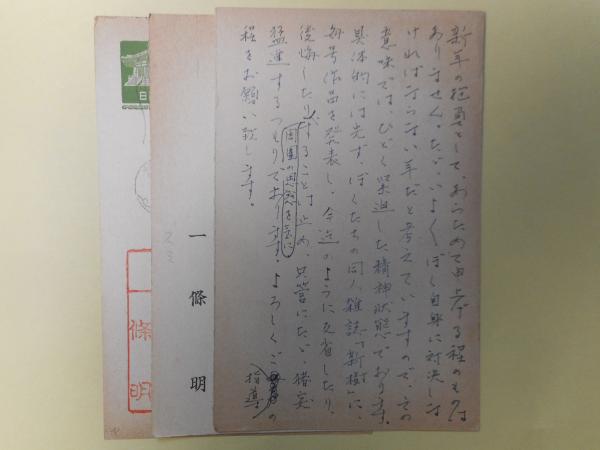 新年の抱負として、あらためて申上げる程のものは
ありません。ただ、いよいよぼく自身に対決しな
ければならない年だと考えていますので、その
意味では、ひどく緊迫した精神状態であります。
具体的には先ず、ぼくたちの同人雑誌「新樹」に、
毎号作品を発表し、今迄のように反省したり、
後悔したりすることは止め、只管にただ、猪突
周囲の思惑を余に
猛進するつもりであります。よろしくご指導の
程をお願い致します。
一條明
日
條
明